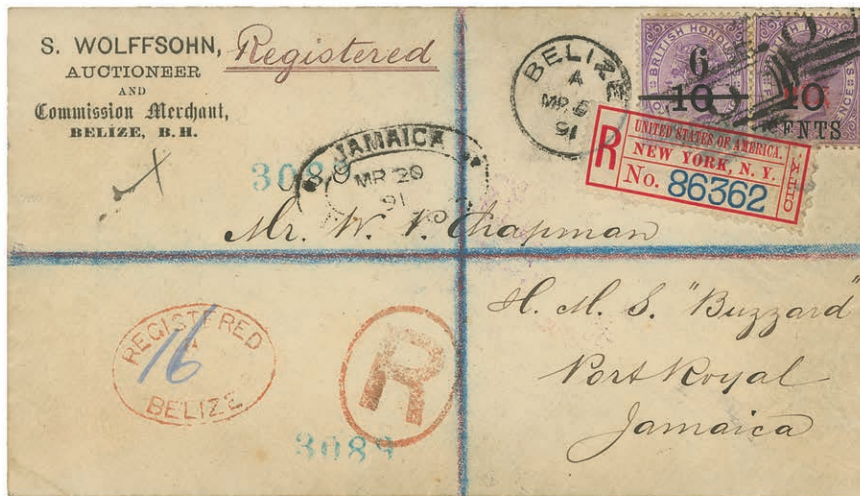 S. WOLFFSOHN,
AUCTIONEER
AND
Commission Merchant,
BELIZE, B. H.
Registered
BELIZE
A
MR 5
91
BRITISH HONDURAS
6
10
10
CENTS
R
UNITED STATES OF AMERICA.
NEW YORK, N. Y.
No. 86362
3089
JAMAICA
MR 20
91
Mr. W. V. Chapman
H. M. S. "Buzzard"
Port Royal
Jamaica
REGISTERED
16
BELIZE
R
3089